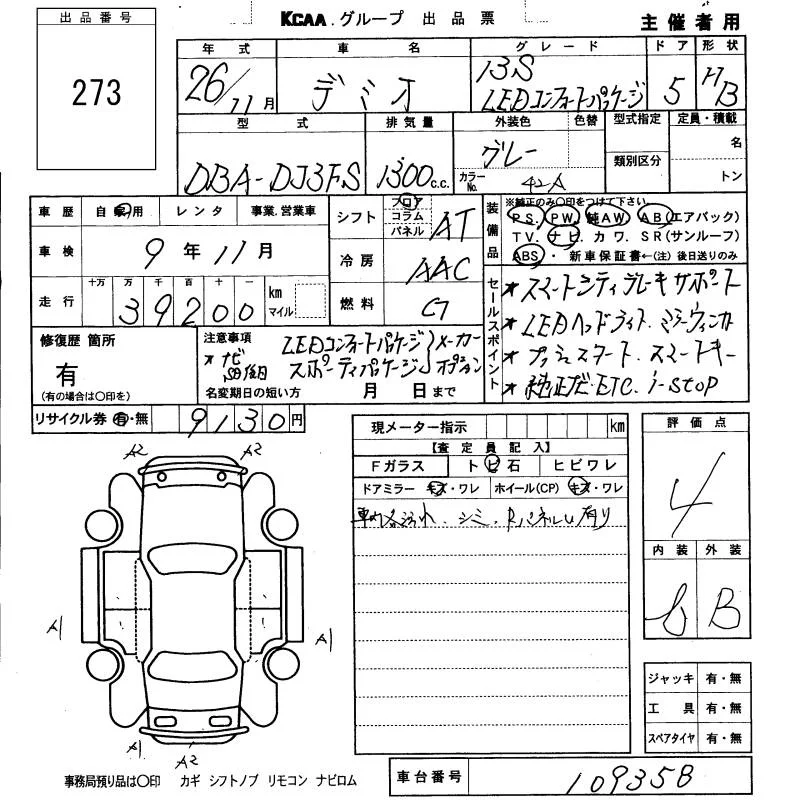 出品番号
273
KCAA.グループ 出品票
主催者用
年式
26/11月
車名
デミオ
グレード
13S
LEDコンフォートパッケージ
ドア
5
形状
HB
型式
DBA-DJ3FS
排気量
1300c.c.
外装色
グレー
色替
カラーNo.
42A
型式指定
類別区分
定員・積載
名
トン
車歴 自家用 レンタ 事業.営業車
車検 9年11月
走行 十万 万 千 百 十 一
39200
km
マイル
シフト
フロア
コラム
パネル
AT
冷房 AAC
燃料 G
装備品
※純正のみ○印をつけて下さい。
PS. PW. 純AW. AB(エアバック)
TV. ナビ. カワ. SR(サンルーフ)
ABS・新車保証書←(注)後日送りのみ
セールスポイント
★スマートシティブレーキサポート
★LEDヘッドライト.ミラーウィンカ
★プッシュスタート.スマートキー
★純正ナビ・ETC. i-stop
修復歴 箇所
有
(有の場合は○印を)
注意事項
★ナビ
LEDコンフォートパッケージ
スポーティパッケージ
メーカーオプション
名変期日の短い方 月 日まで
リサイクル券 有・無 9130円
現メーター指示 km
【査定員記入】
Fガラス トビ石 ヒビワレ
ドアミラー キズ・ワレ ホイール(CP) キズ・ワレ
シミ. 有り
評価点
4
内装 外装
B
A2 A2
A1 A1
A1 A2
ジャッキ 有・無
工具 有・無
スペアタイヤ 有・無
事務局預り品は○印 カギ シフトノブ リモコン ナビロム
車台番号 109358